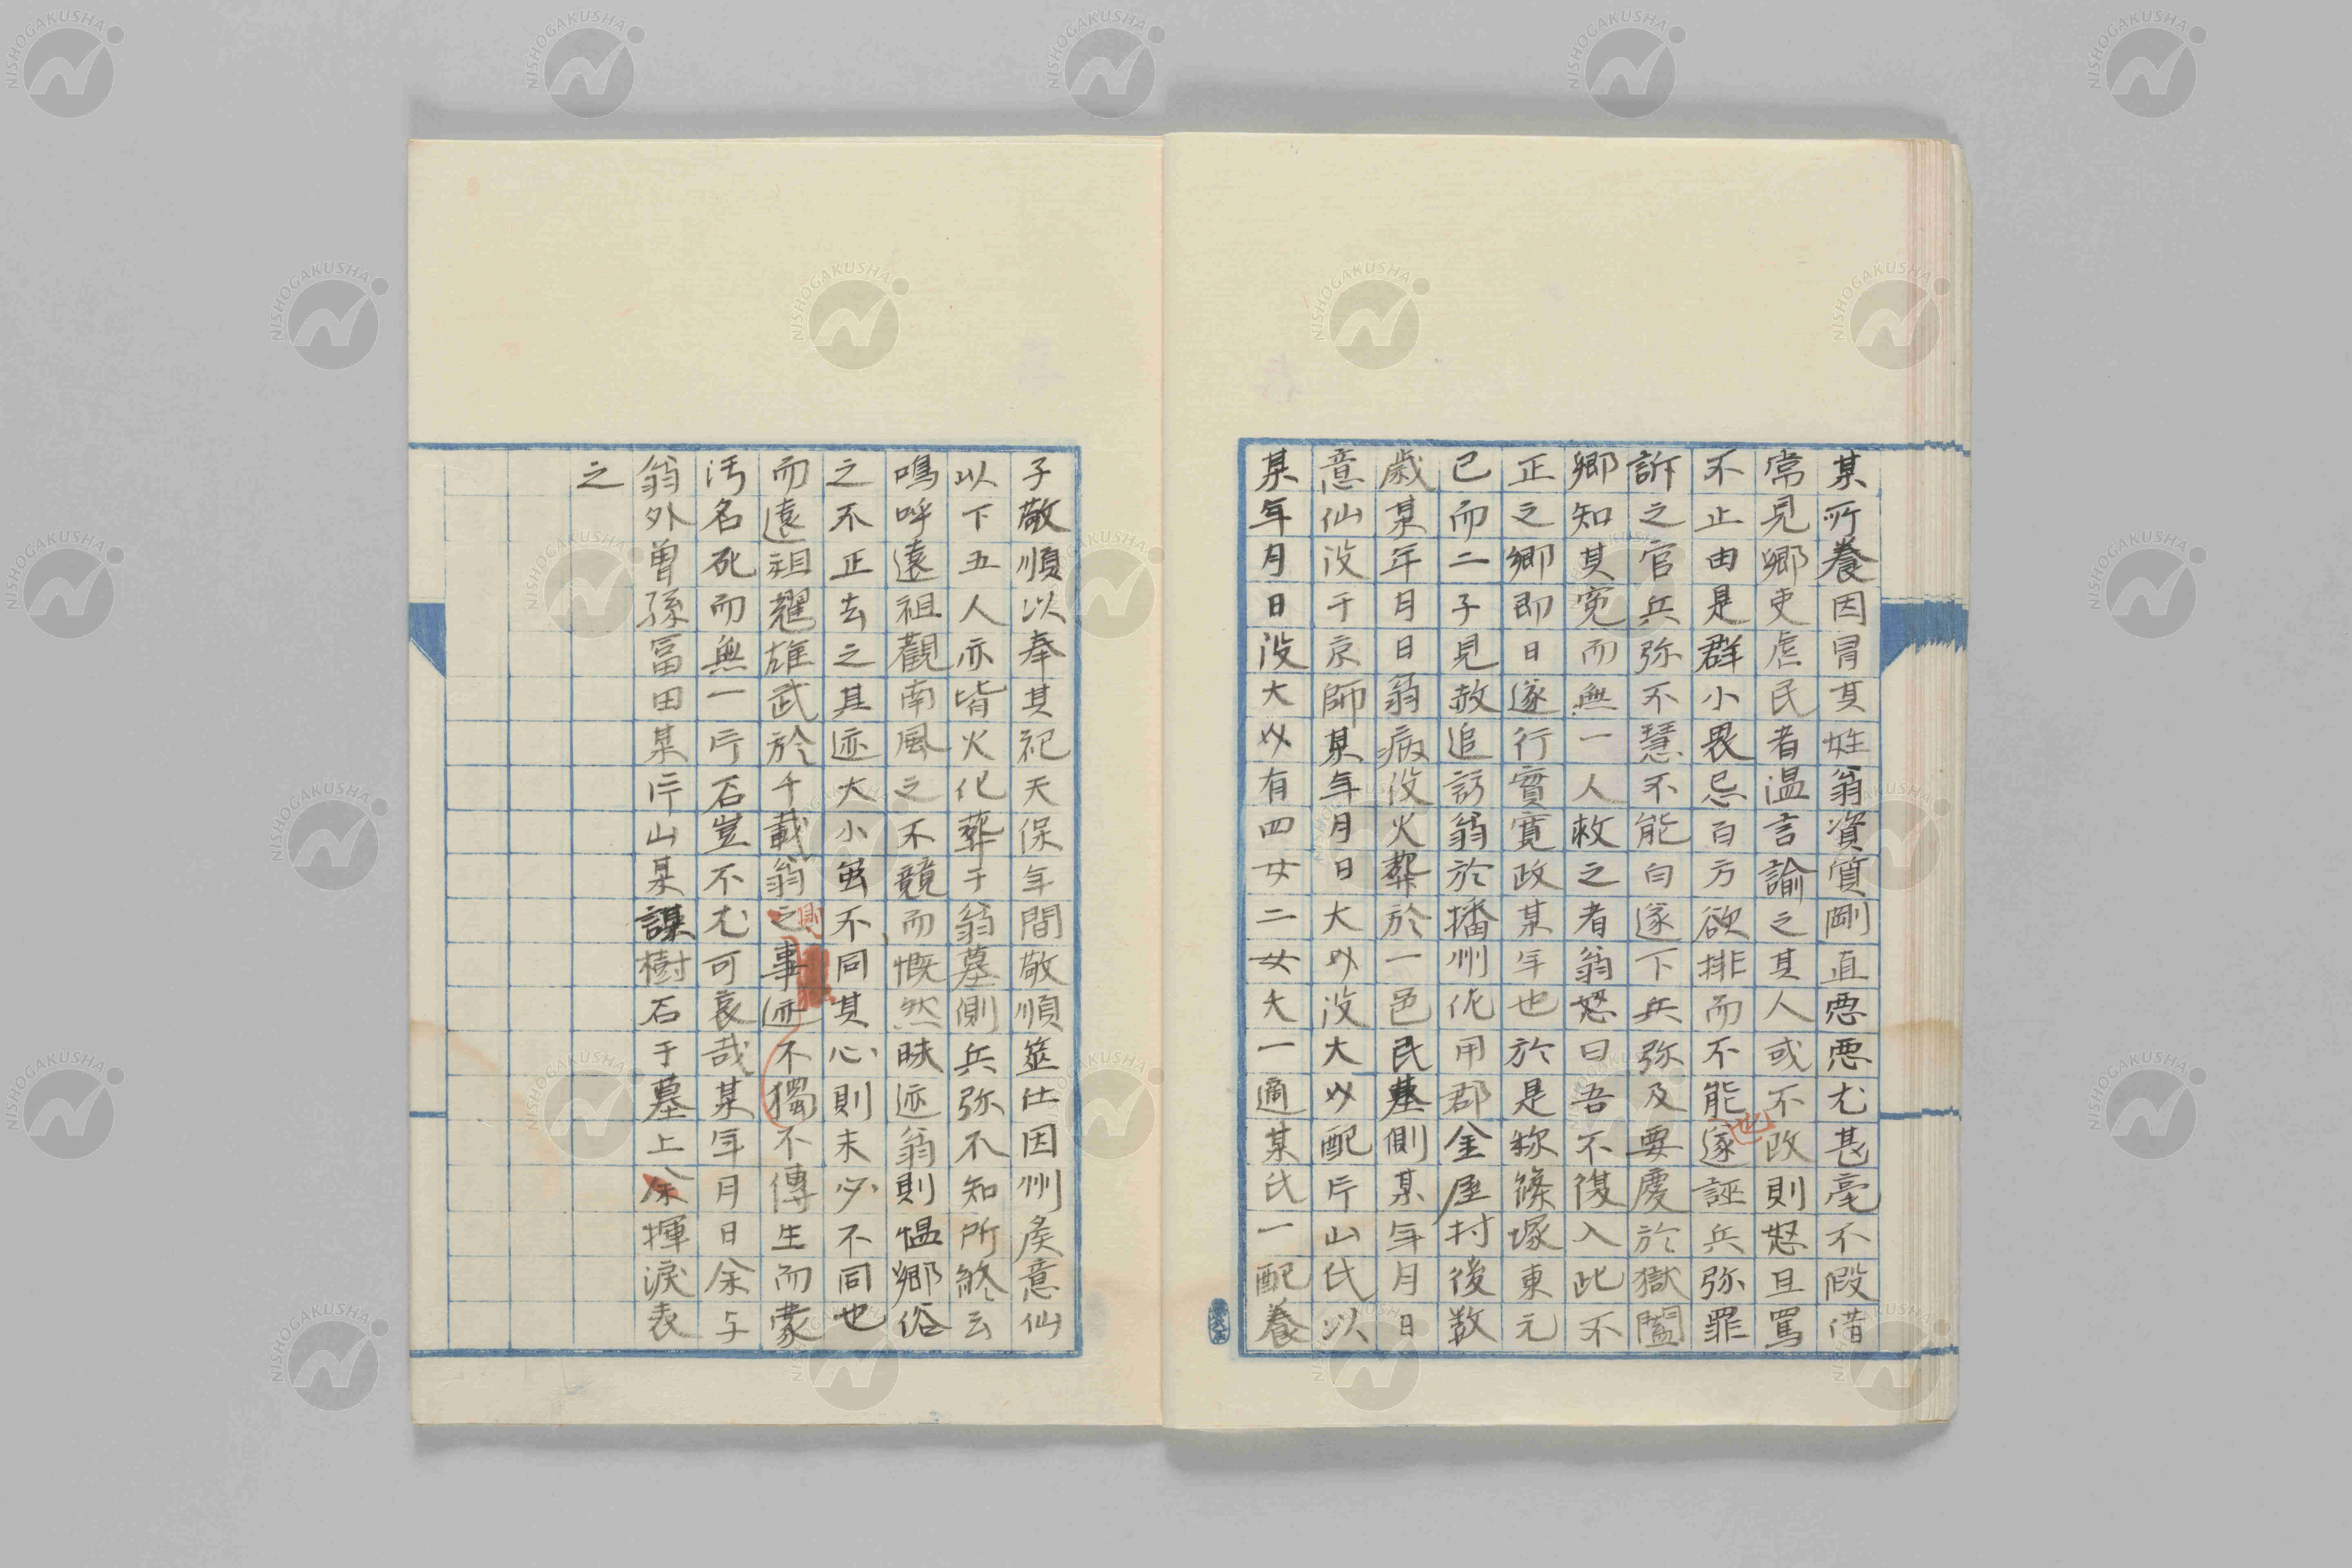 某所養因冒其姓翁資質剛直悪悪尤甚毫不假借
常見郷吏虐民者温言諭之其人或不改則怒且罵
不止由是群小畏忌百方欲排而不能遂誣兵弥罪
也
訴之官兵弥不慧不能白遂下兵弥及要慶於獄闔
郷知其寃而無一人救之者翁怒曰吾不復入此不
正之郷即日遂行實寛政某年也於是称篠塚東元
已而二子見赦追訪翁於播州佐用郡金屋村後数
歳某年月日翁病没火葬於一邑民墓側某年月日
意仙没于京師某年月日大必没大必配片山氏以
某年月日没大必有四女二女夭一適某氏一配養
子敬順以奉其祀天保年間敬順筮仕因州侯意仙
以下五人亦皆火化葬于翁墓側兵弥不知所終云
鳴呼遠祖觀南風之不競而慨然昧迹翁則愠郷俗
之不正去之其迹大小虽不同其心則未必不同也
而遠祖耀雄武於千載翁之事迹不獨不傳生而蒙
則
汚名死而無一片石豈不尤可哀哉某年月日余与
翁外曽孫冨田某片山某謀樹石于墓上余揮淚表
之
NISHOGAKUSHA